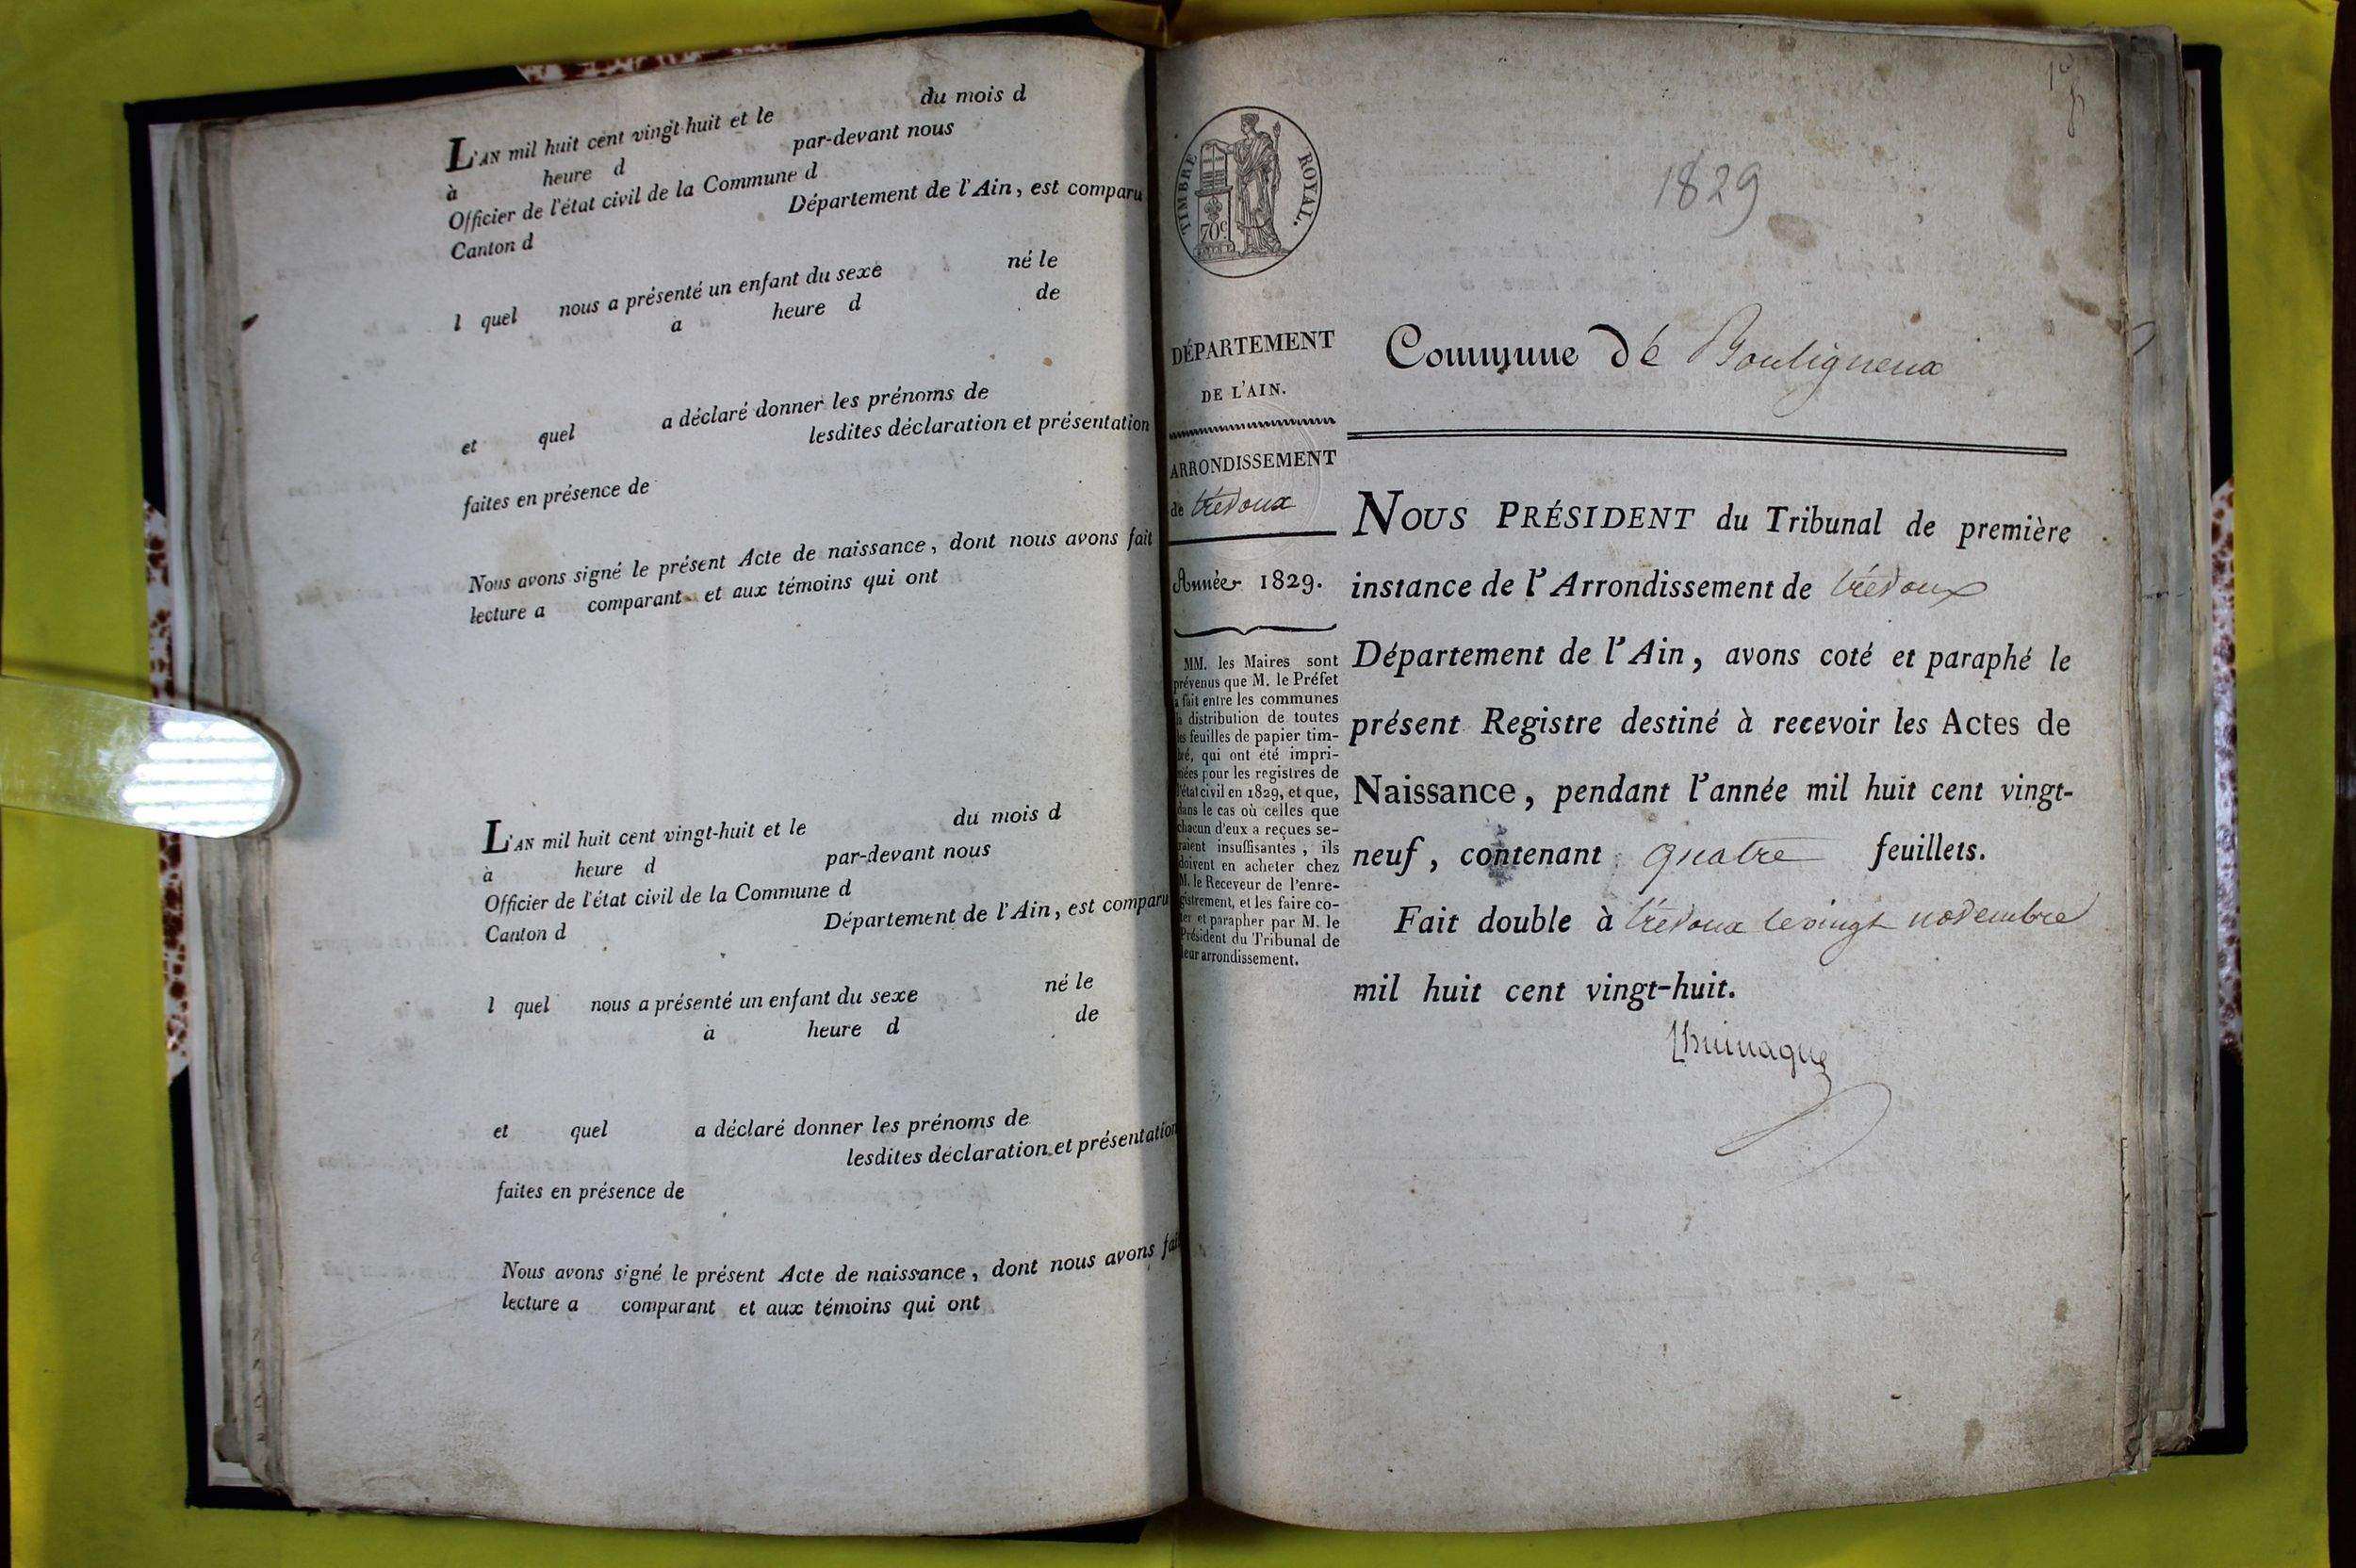 L'AN mil huit cent vingt-huit et le du mois d
à heure d par-devant nous
Officier de l'état civil de la Commune d
Canton d Département de l'Ain, est comparu
l quel nous a présenté un enfant du sexe né le
a heure d de
et quel a déclaré donner les prénoms de
lesdites déclaration et présentation
faites en présence de
Nous avons signé le présent Acte de naissance, dont nous avons fait
lecture a comparant et aux témoins qui ont
L'AN mil huit cent vingt-huit et le du mois d
à heure d par-devant nous
Officier de l'état civil de la Commune d
Canton d Département de l'Ain, est comparu
l quel nous a présenté un enfant du sexe né le
à heure d de
et quel a déclaré donner les prénoms de
lesdites déclaration et présentation
faites en présence de
Nous avons signé le présent Acte de naissance, dont nous avons fait
lecture a comparant et aux témoins qui ont
TIMBRE ROYAL.
70c
1829
DÉPARTEMENT
DE L'AIN.
ARRONDISSEMENT
de trévoux
Année 1829.
MM. les Maires sont
prévenus que M. le Préfet
a fait entre les communes
la distribution de toutes
les feuilles de papier tim-
bré, qui ont été impri-
mées pour les registres de
l'état civil en 1829, et que,
dans le cas où celles que
chacun d'eux a reçues se-
raient insuffisantes, ils
doivent en acheter chez
M. le Receveur de l'enre-
gistrement, et les faire co-
ter et parapher par M. le
Président du Tribunal de
leur arrondissement.
Commune de Bouligneux
NOUS PRÉSIDENT du Tribunal de première
instance de l'Arrondissement de trévoux
Département de l'Ain, avons coté et paraphé le
présent Registre destiné à recevoir les Actes de
Naissance, pendant l'année mil huit cent vingt-
neuf, contenant quatre feuillets.
Fait double à trévoux le vingt novembre
mil huit cent vingt-huit.